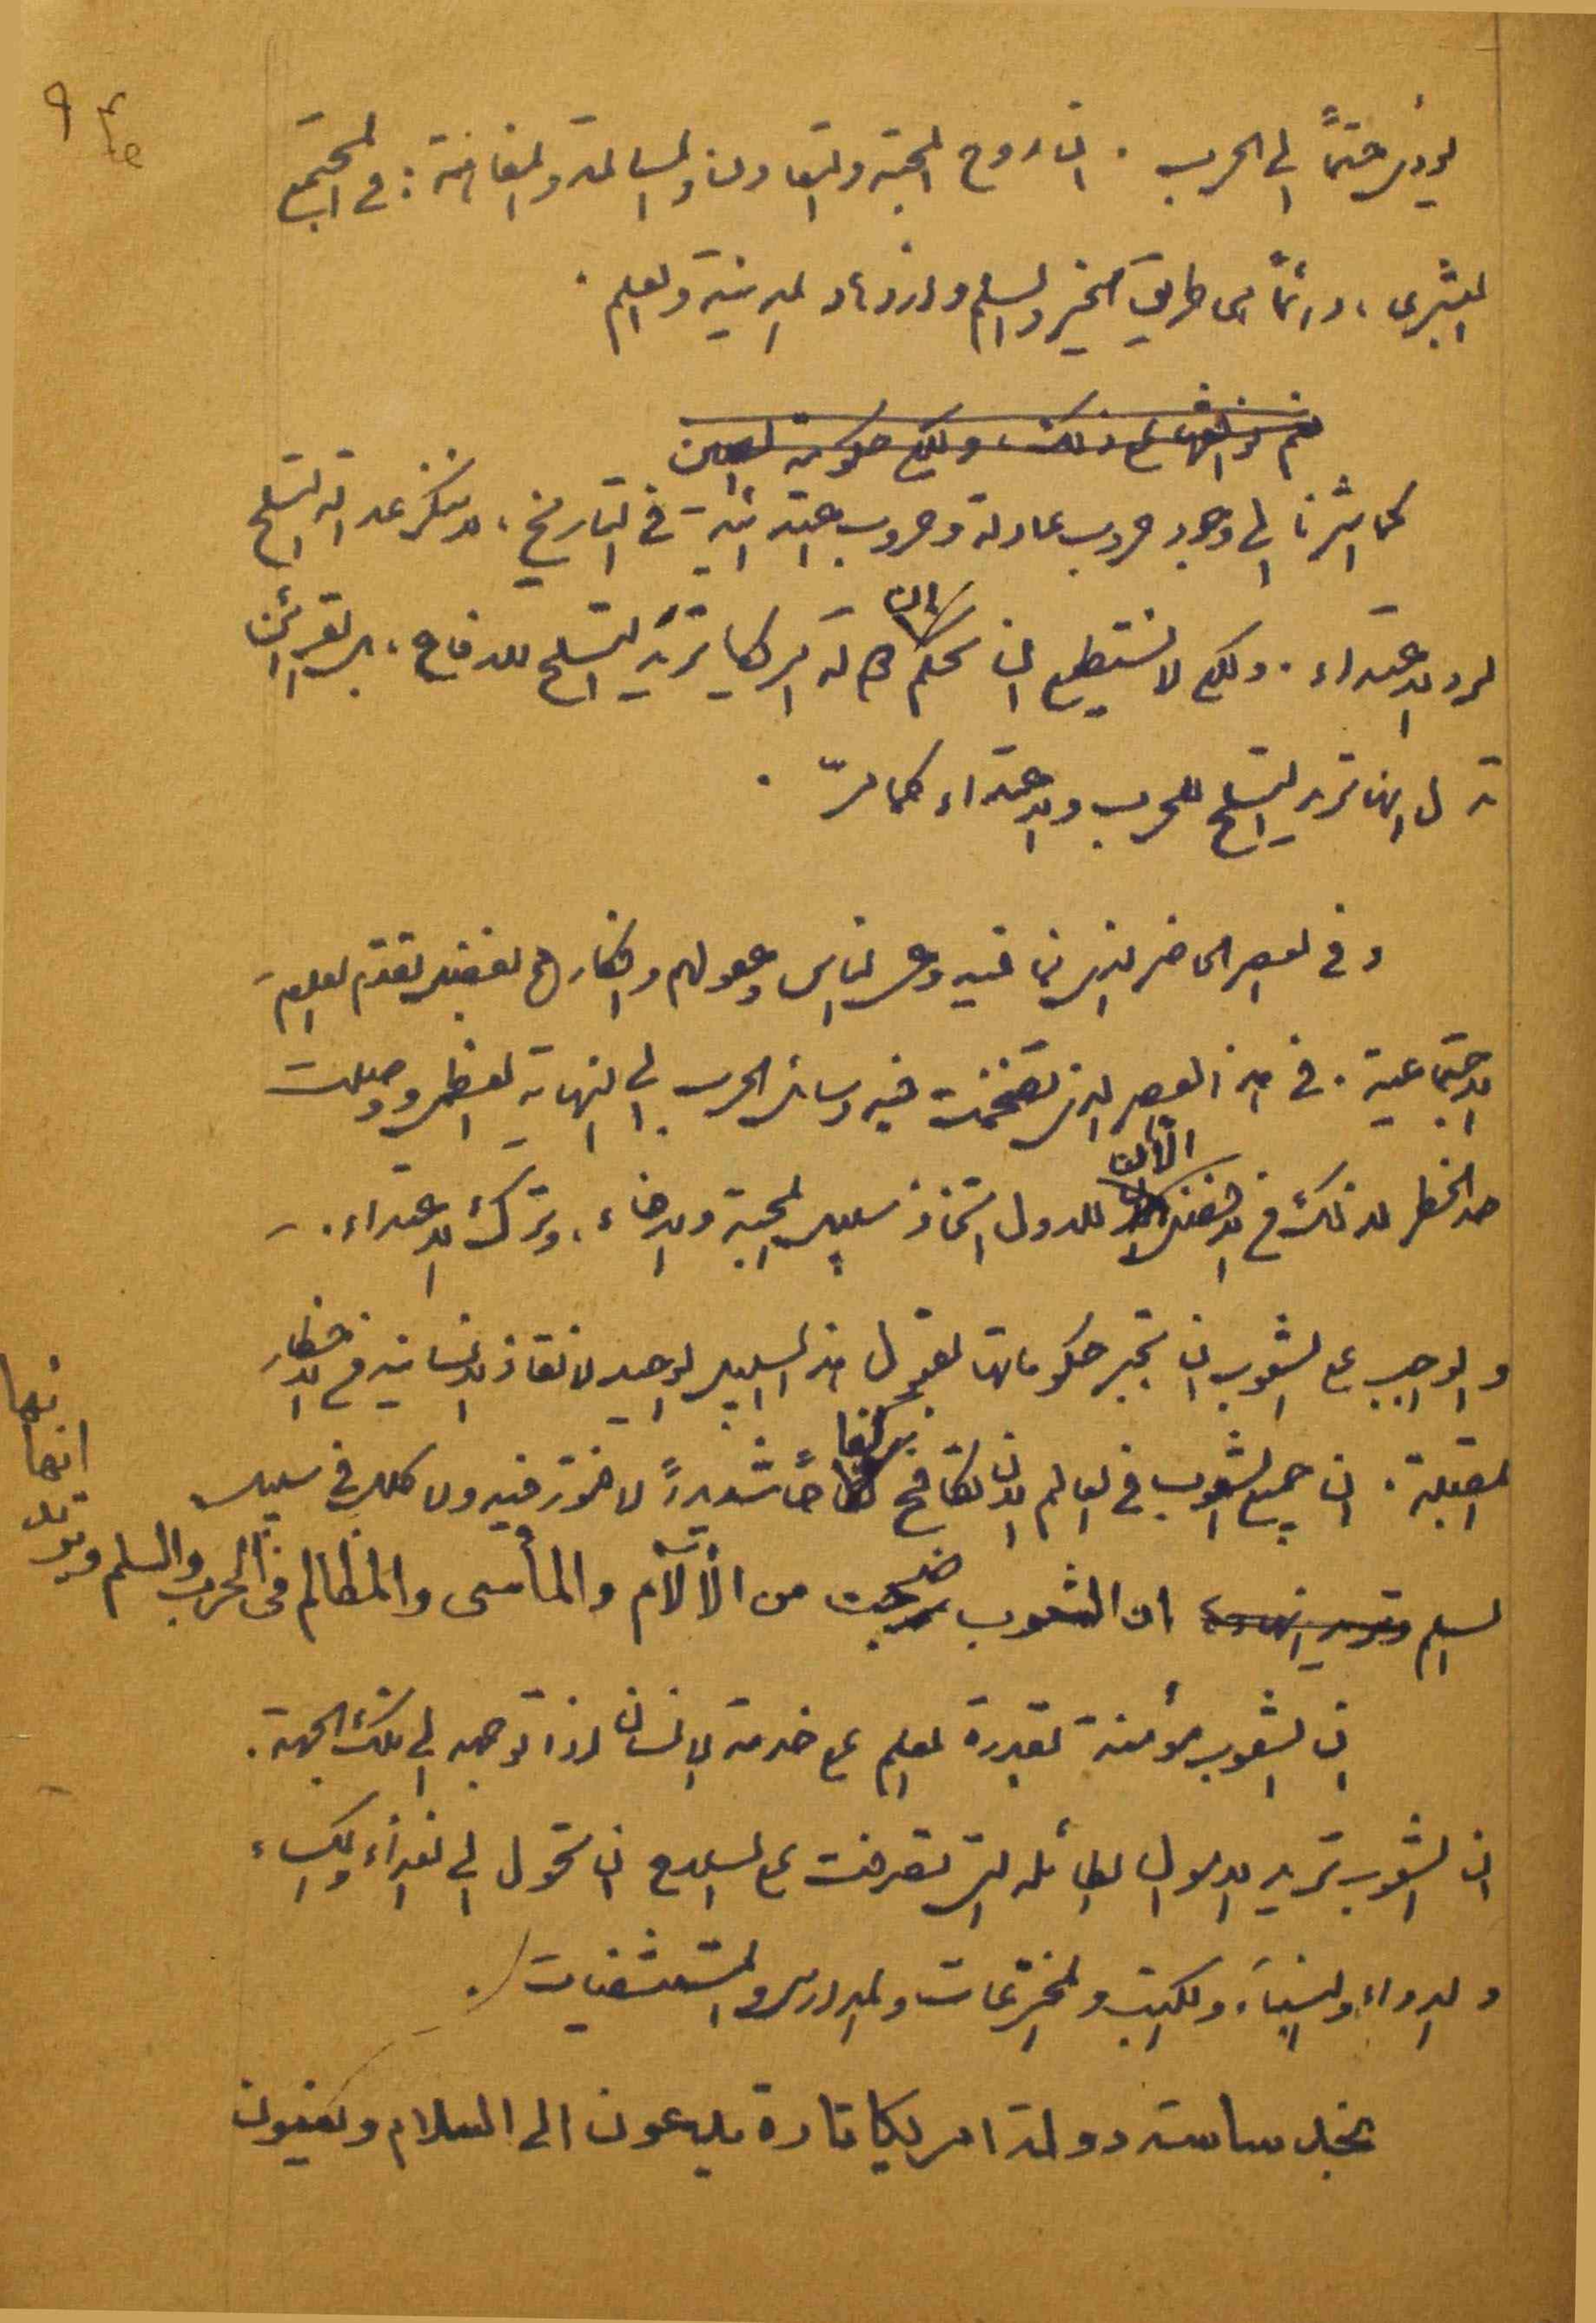 يؤدي حتماً الى الحرب . ان روح المحبة والتعاون والمسالمة والمفاهمة : في المجتمع
البشري ، دائماً هي طريق الخير والسلم وازدهار المدنية والعلم .
نعم نوافقهم على ذلك ، ولكن حكومة الصين
كما اشرنا الى وجود حروب عادلة وحروب اعتدائية في التاريخ ، لا ننكر عدالة التسلح
لرد الاعتداء . ولكن لا نستطيع ان نحكم الان ان امريكا تريد التسلح للدفاع ، بل القرائن
تدل انها تريد التسلح للحرب والاعتداء كما مرّ .
و في العصر الحاضر الذي نما فيه وعي الناس وعقولهم وافكارهم بفضل تقدم العلوم
الاجتماعية . في هذا العصر الذي تضخمت فيه وسائل الحرب الى النهاية العظمى ووصلت
حد الخطر لذلك فمن الافضل الآن للدول اتخاذ سبيل المحبة والاخاء ، وترك الاعتداء .
و الواجب على الشعوب ان تجبر حكوماتها لقبول هذا السبيل الوحيد لانقاذ الانسانية من الاخطار
المقبلة . ان جميع الشعوب في العالم الان تكافح كفاحاً شديداً لا فتور فيه ولا كلل في سبيل
السلم وتريد انها ان الشعوب ضجت من الآلآم والمأسى والمظالم فى الحرب والسلم وتريد
انهائها
ان الشعوب مؤمنة بقدرة العلم على خدمة الانسان اذا توجه الى تلك الجهة .
ان الشعوب تريد الاموال الطائله التي تصرفت على السلاح ان تتحول الى الغذاء والكساء
و الدواء والبناء ، والكتب والمخترعات والمدارس والمستشفيات .
نجد ساسة دولة امريكا تارة يدعون الى السلام ويكفيون